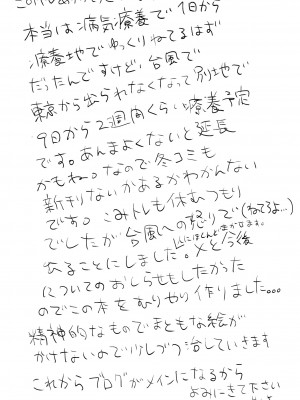 本当は病気療養で1日から
療養地でゆっくりねてるはず
だったんですけど、台風で
東京から出られなくなって別地で
9日から2週間くらい療養予定
です。あんまよくないと延長
かもね。なので冬コミも
新刊ないかあるかわかんない
です。こみトレも休むつもり
でしたが台風への怒りで(ねてるよ…)
出ることにしました。
〆と今後
についてのおしらせもしたかった
のでこの本をむりやり作りました…
精神的なものでまともな絵が
かけないので少しづつ治していきます
これからブログがメインになるから
よみにきて下さい